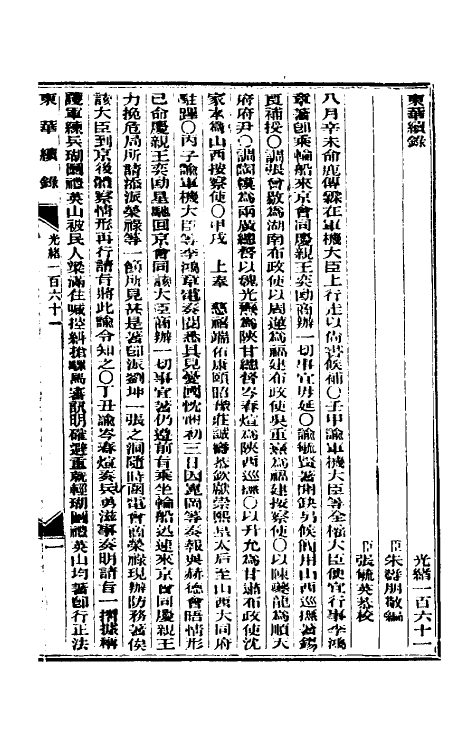 東華續錄
光緒一百六十一
臣朱壽朋敬編
臣張毓英恭校
八月辛未命鹿傳霖在軍機大臣上行走以尚書候補○壬申諭軍機大臣等全權大臣便宜行事李鴻
章著卽乘輪船來京會同慶親王奕劻商辦一切事宜毋延○諭毓賢著開缺另候簡用山西巡撫著錫
良補授○調張曾敭爲湖南布政使以周蓮爲福建布政使吳重熹爲福建按察使○以陳夔龍爲順天
府府尹○調陶模爲兩廣總督以魏光燾爲陝甘總督岑春煊爲陝西巡撫○以升允爲甘肅布政使沈
家本爲山西按察使○甲戌 上奉 慈禧端佑康頤昭豫莊誠壽恭欽獻崇熙皇太后至山西大同府
駐蹕○丙子諭軍機大臣等李鴻章電奏閱悉具見愛國忱悃初三日因寬岡等奏報與赫德會晤情形
已命慶親王奕劻星馳回京會同該大臣商辦一切事宜著仍遵前旨乘坐輪船迅速來京會同慶親王
力挽危局所請添派榮祿等一節所見甚是著卽派劉坤一張之洞隨時函電會商榮祿現辦防務著俟
該大臣到京後體察情形再行請旨將此諭令知之○丁丑諭岑春煊奏兵勇滋事奏明請旨一摺據稱
護軍練兵瑚圖禮英山被民人梁滿住喊控糾搶騾馬審訊明確避重就輕瑚圖禮英山均著卽行正法
東華續錄
光緒一百六十一
一